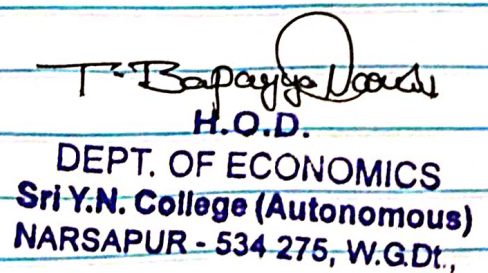 T. Bapayya
H.O.D.
DEPT. OF ECONOMICS
Sri Y.N. College (Autonomous)
NARSAPUR - 534 275, W.G.Dt.,